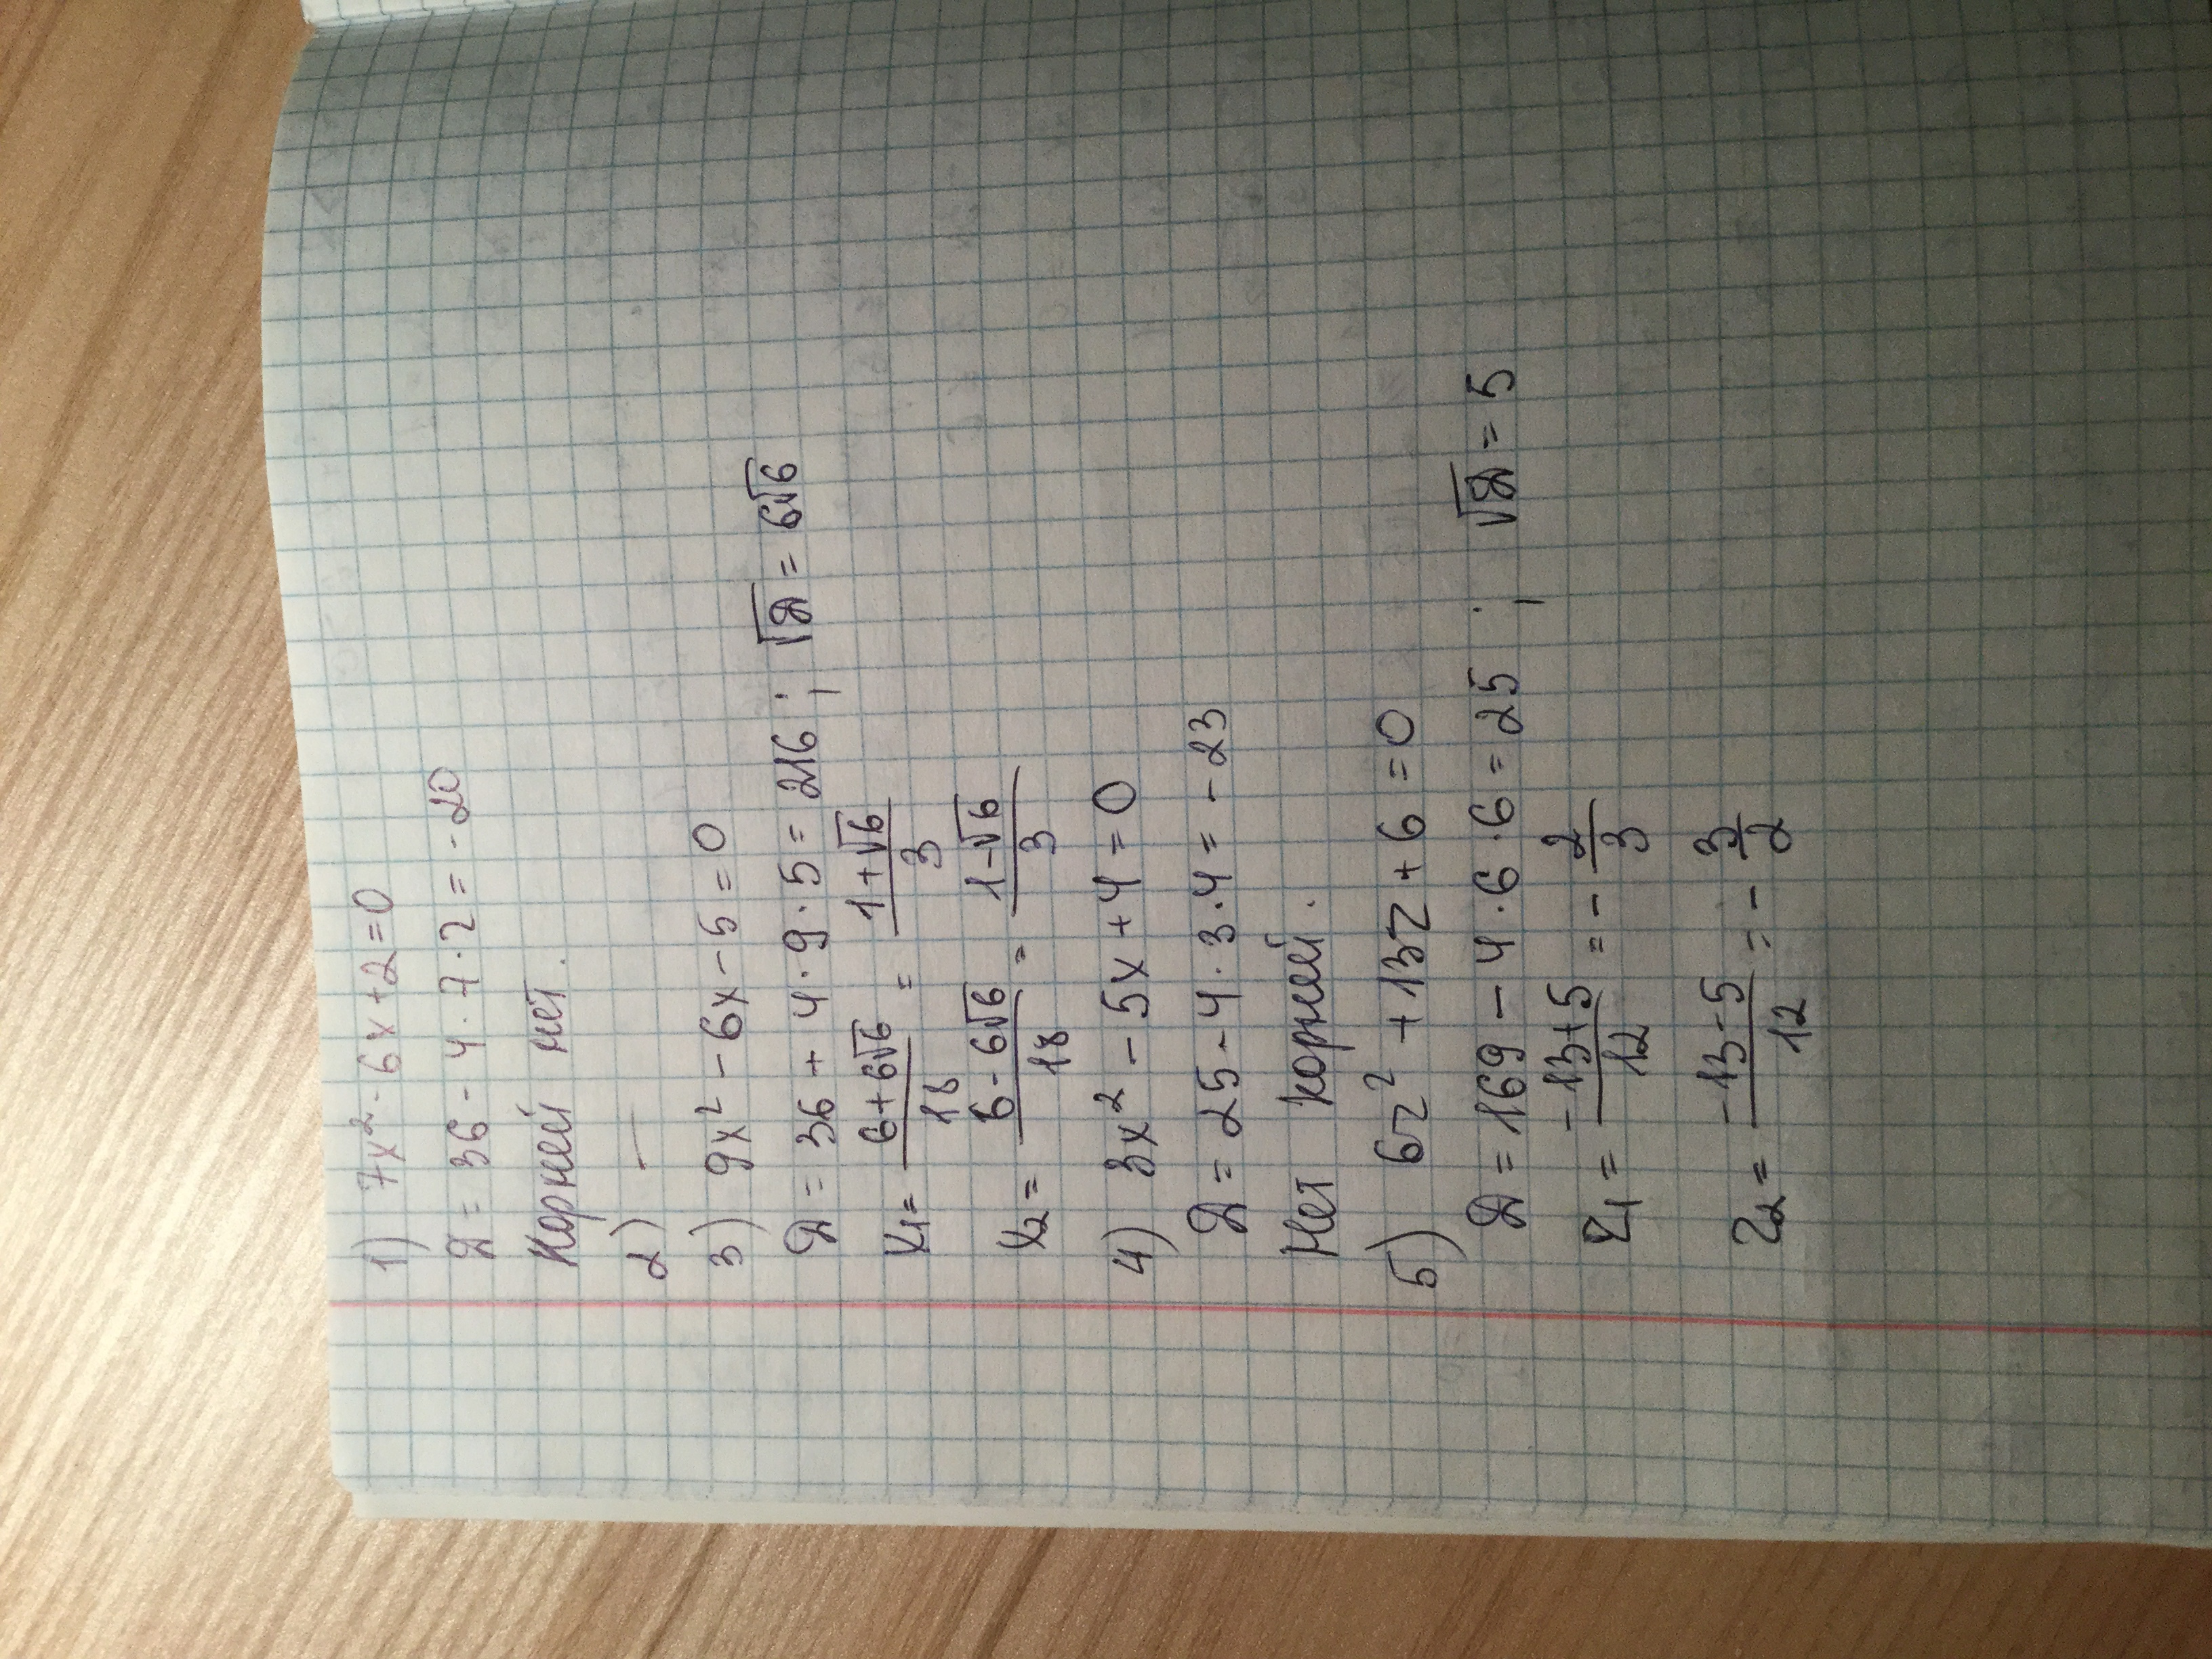 1) 7x² - 6x + 2 = 0
D = 36 - 4 · 7 · 2 = -20
Корней нет.
2) —
3) 9x² - 6x - 5 = 0
D = 36 + 4 · 9 · 5 = 216 ; √D = 6√6
x₁ = (6 + 6√6)/18 = (1 + √6)/3
x₂ = (6 - 6√6)/18 = (1 - √6)/3
4) 3x² - 5x + 4 = 0
D = 25 - 4 · 3 · 4 = - 23
Нет корней.
5) 6z² + 13z + 6 = 0
D = 169 - 4 · 6 · 6 = 25 ; √D = 5
z₁ = (-13 + 5)/12 = - 2/3
z₂ = (-13 - 5)/12 = - 3/2